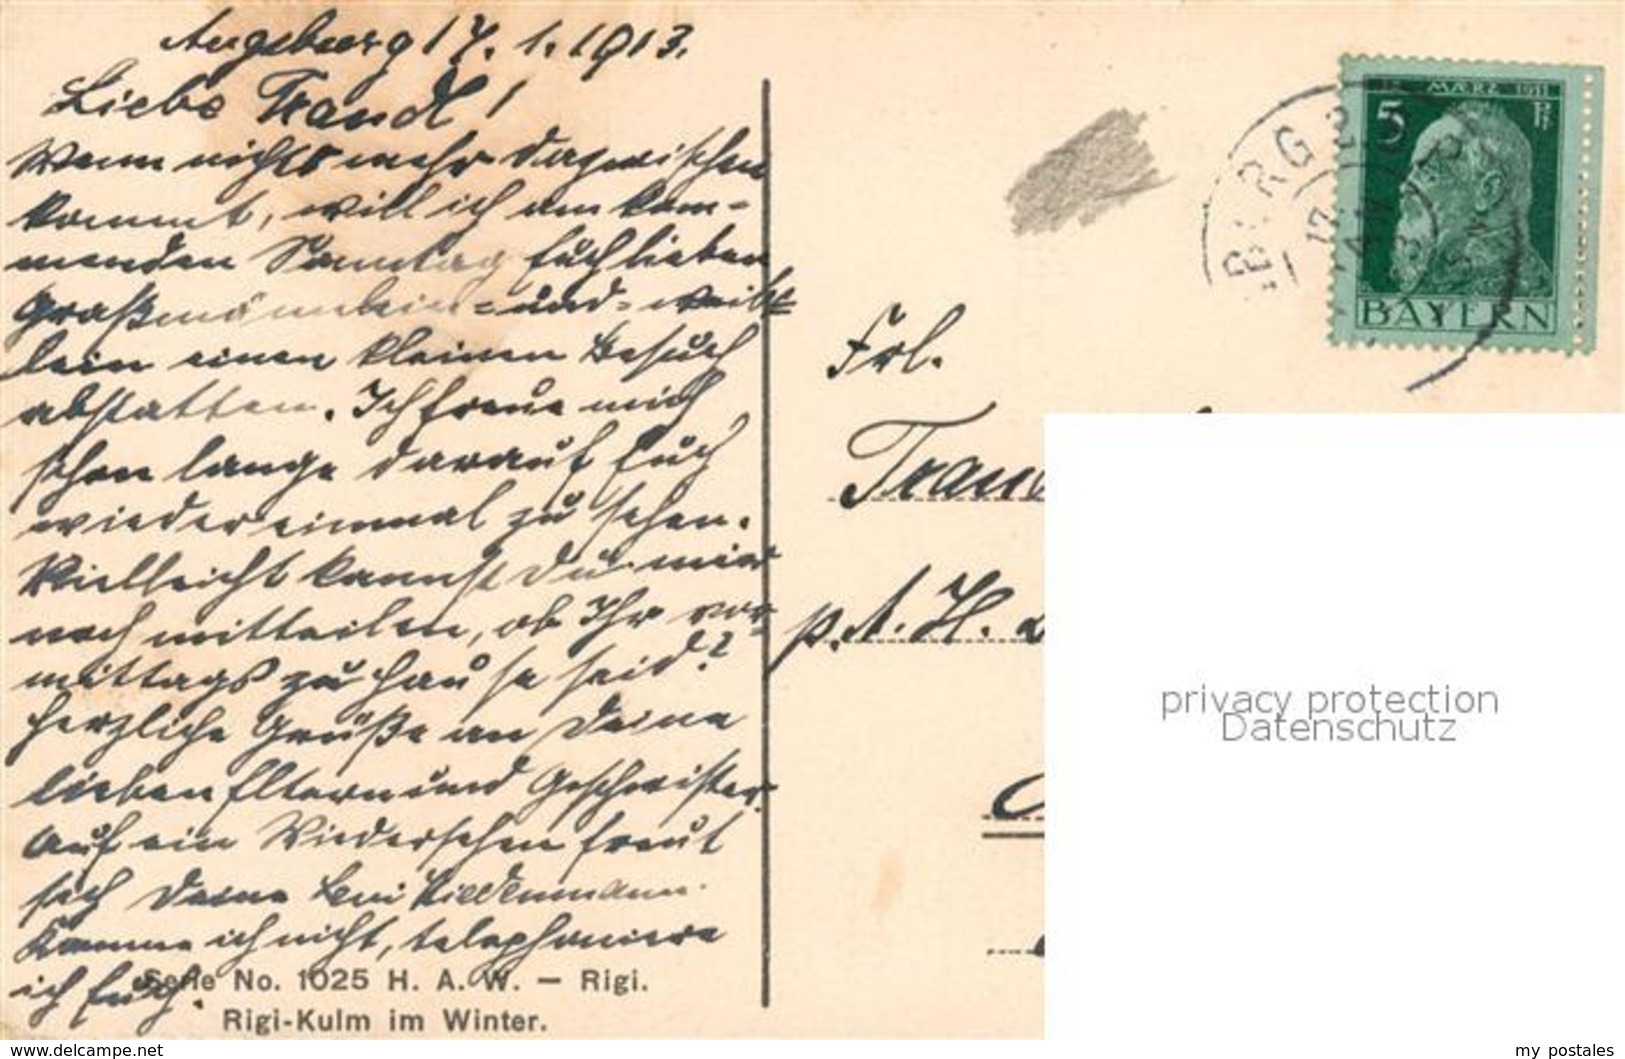 Augsburg 17. 1. 1913.
Liebe Traudl!
Wenn nichts mehr dazwischen
kommt, will ich am kom-
menden Sonntag Euch lieben
Großmännlein- und -weib-
lein einen kleinen Besuch
abstatten. Ich freue mich
schon lange darauf Euch
wieder einmal zu sehen.
Vielleicht kannst Du mir
noch mitteilen, ob Ihr vor-
mittags zu Hause seid?
Herzliche Grüße an Deine
lieben Eltern und Geschwister.
Auf ein Wiedersehen freut
sich Deine
Komme ich nicht, telephoniere
ich Euch.
Serie No. 1025 H. A. W. — Rigi.
Rigi-Kulm im Winter.
12. MÄRZ 1911
5 Pf
BAYERN
Frl.
p. A. H.
privacy protection
Datenschutz
www.delcampe.net
my_postales